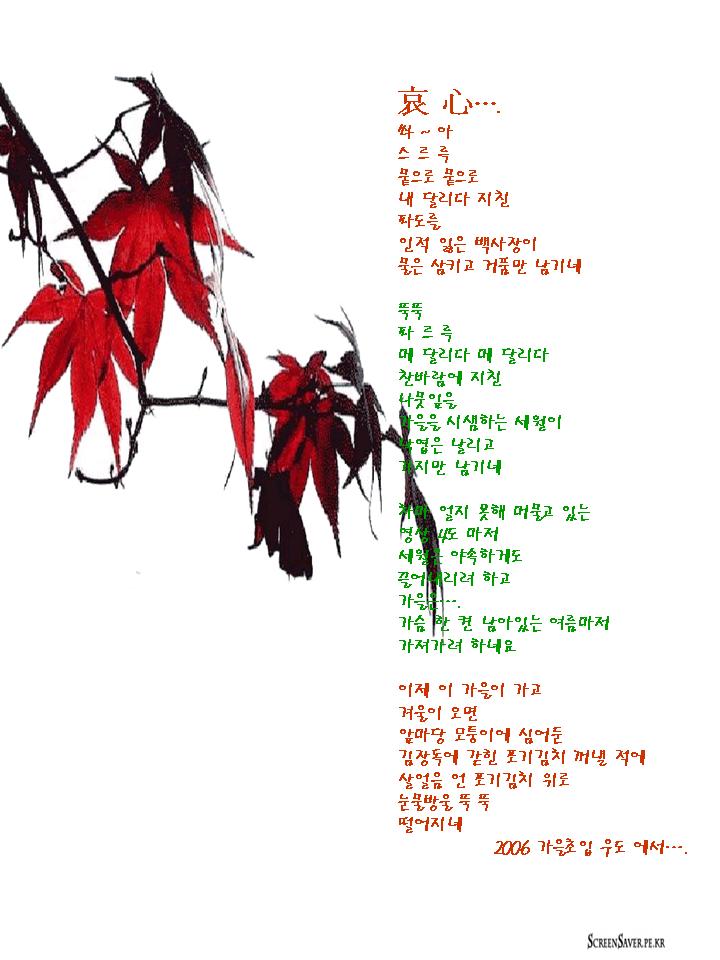 哀 心….
쏴 ~ 아
스 르 륵
뭍으로 뭍으로
내 달리다 지친
파도를
인적 잃은 백사장이
물은 삼키고 거품만 남기네
뚝뚝
파 르 륵
메 달리다 메 달리다
찬바람에 지친
나뭇잎을
가을을 시샘하는 세월이
낙엽은 날리고
가지만 남기네
차마 얼지 못해 머물고 있는
영상 4도 마저
세월은 야속하게도
끌어내리려 하고
가을은….
가슴 한 켠 남아있는 여름마저
가져가려 하네요
이제 이 가을이 가고
겨울이 오면
앞마당 모퉁이에 심어둔
김장독에 갇힌 포기김치 꺼낼 적에
살얼음 언 포기김치 위로
눈물방울 뚝 뚝
떨어지네
2006 가을초입 우도 에서….
SCREENSAVER.PE.KR